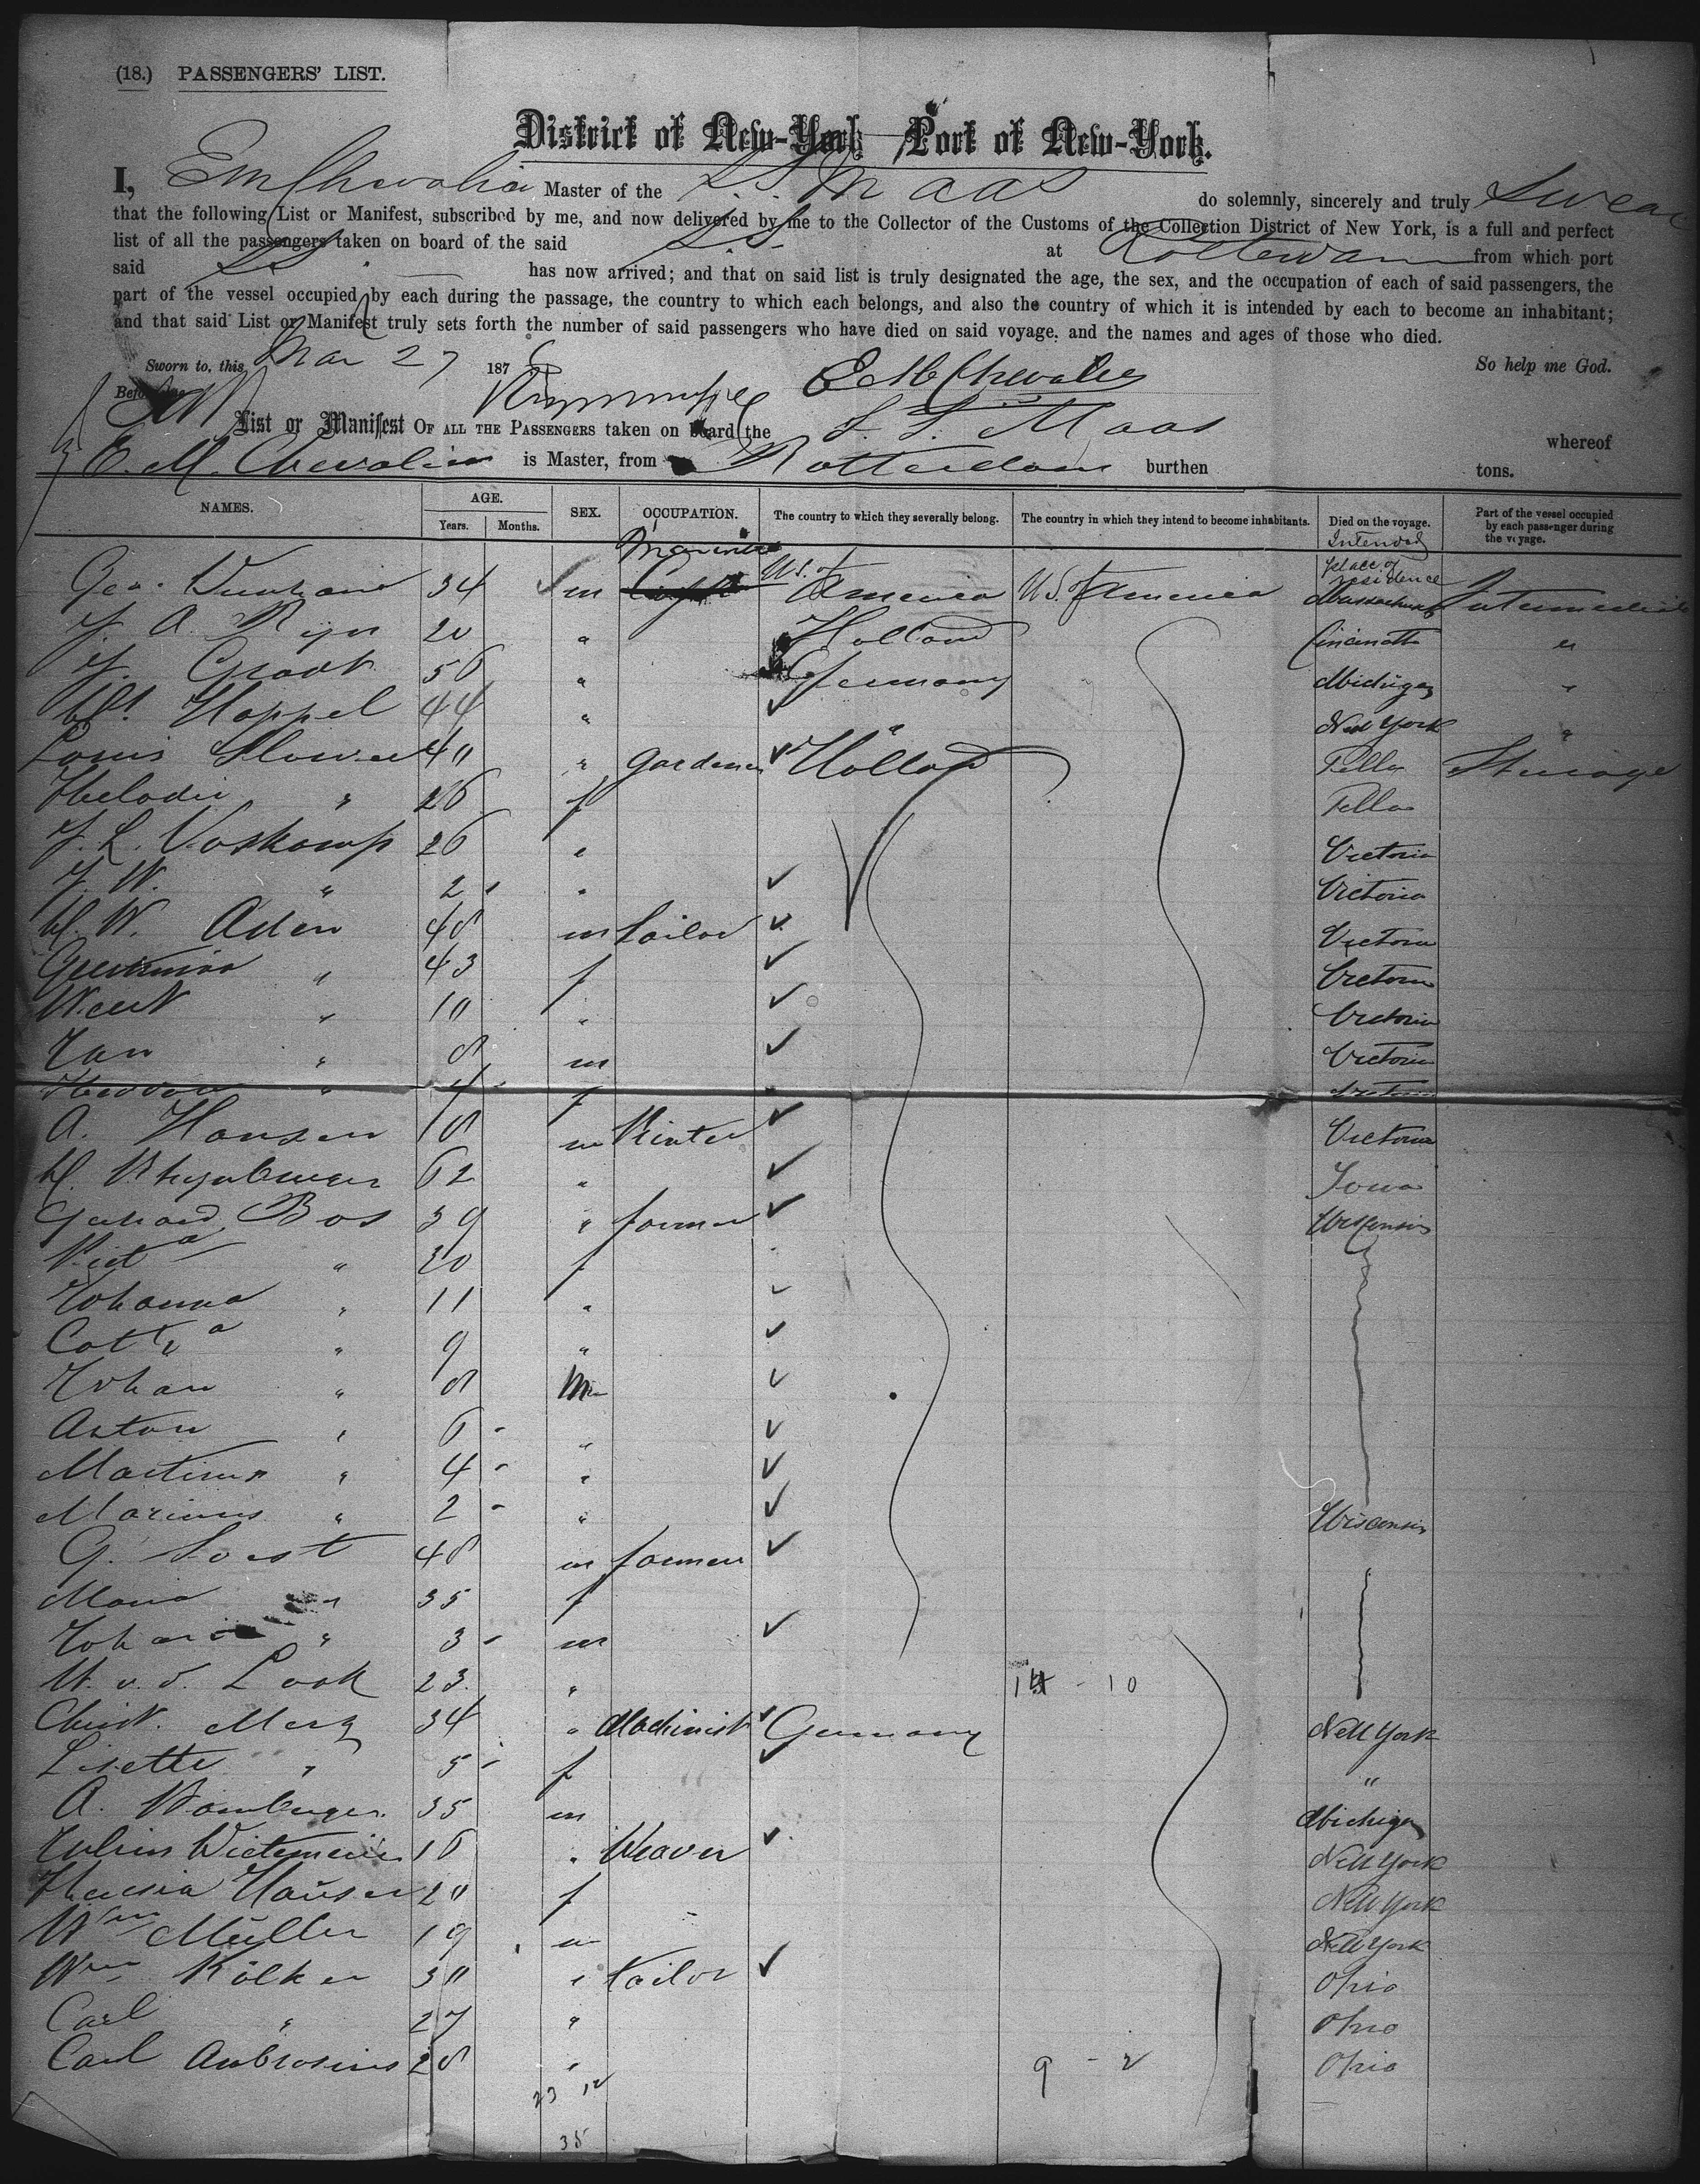 (18.) PASSENGERS' LIST.
District of New-York Port of New-York.
I, E M Chevalier Master of the S.S. Maas do solemnly, sincerely and truly Swear
that the following List or Manifest, subscribed by me, and now delivered by me to the Collector of the Customs of the Collection District of New York, is a full and perfect
list of all the passengers taken on board of the said S.S. at Rotterdam from which port
said SS has now arrived; and that on said list is truly designated the age, the sex, and the occupation of each of said passengers, the
part of the vessel occupied by each during the passage, the country to which each belongs, and also the country of which it is intended by each to become an inhabitant;
and that said List or Manifest truly sets forth the number of said passengers who have died on said voyage, and the names and ages of those who died.
Sworn to, this Mar 27 187 So help me God.
Before me E M Chevalier
List or Manifest OF ALL THE PASSENGERS taken on board the S. S. Maas whereof
E. M. Chevalier is Master, from Rotterdam burthen tons.
NAMES. AGE. Years. Months. SEX. OCCUPATION. The country to which they severally belong. The country in which they intend to become inhabitants. Died on the voyage. Part of the vessel occupied by each passenger during the voyage.
Intended place of residence
Geo. 34 m Mariner U.S. of America U.S. of America Massachusetts Intermediate
J. A. Ryn 20 " Holland Cincinatti "
J. 56 " Germany Michigan "
Hoppel 44 " New York "
Louis 40 " Gardener Holland Pella Steerage
" 26 f Pella
J. L. Voskamp 26 " Victoria
J. W. " 2 - " Victoria
H. W. Aden 48 m Sailor Victoria
" 43 f Victoria
" 10 " Victoria
Jan " 8 m Victoria
" 4 - f Victoria
A. Hansen 18 m Printer Victoria
H. 62 " Iowa
Gerhard Bos 39 " farmer Wisconsin
" 30 f
Johanna " 11 "
Cath'a " 9 "
Johan " 8 m
Anton " 6 - "
Martinus " 4 - "
Marinus " 2 - " Wisconsin
G. Soest 48 m farmer
Maria " 35 f
" 3 - m
v. d. Look 23 " 14 - 10
Christ. Merz 34 " Machinist Germany New York
Lisette " 5 - f "
A. Bamberger 35 m Michigan
Julius 16 " Weaver New York
Hauser 20 f New York
Wm Müller 19 m New York
Wm Kölker 30 " tailor Ohio
Carl " 27 " Ohio
Carl Ambrosius 28 " 9 - 2 Ohio
23 12
35